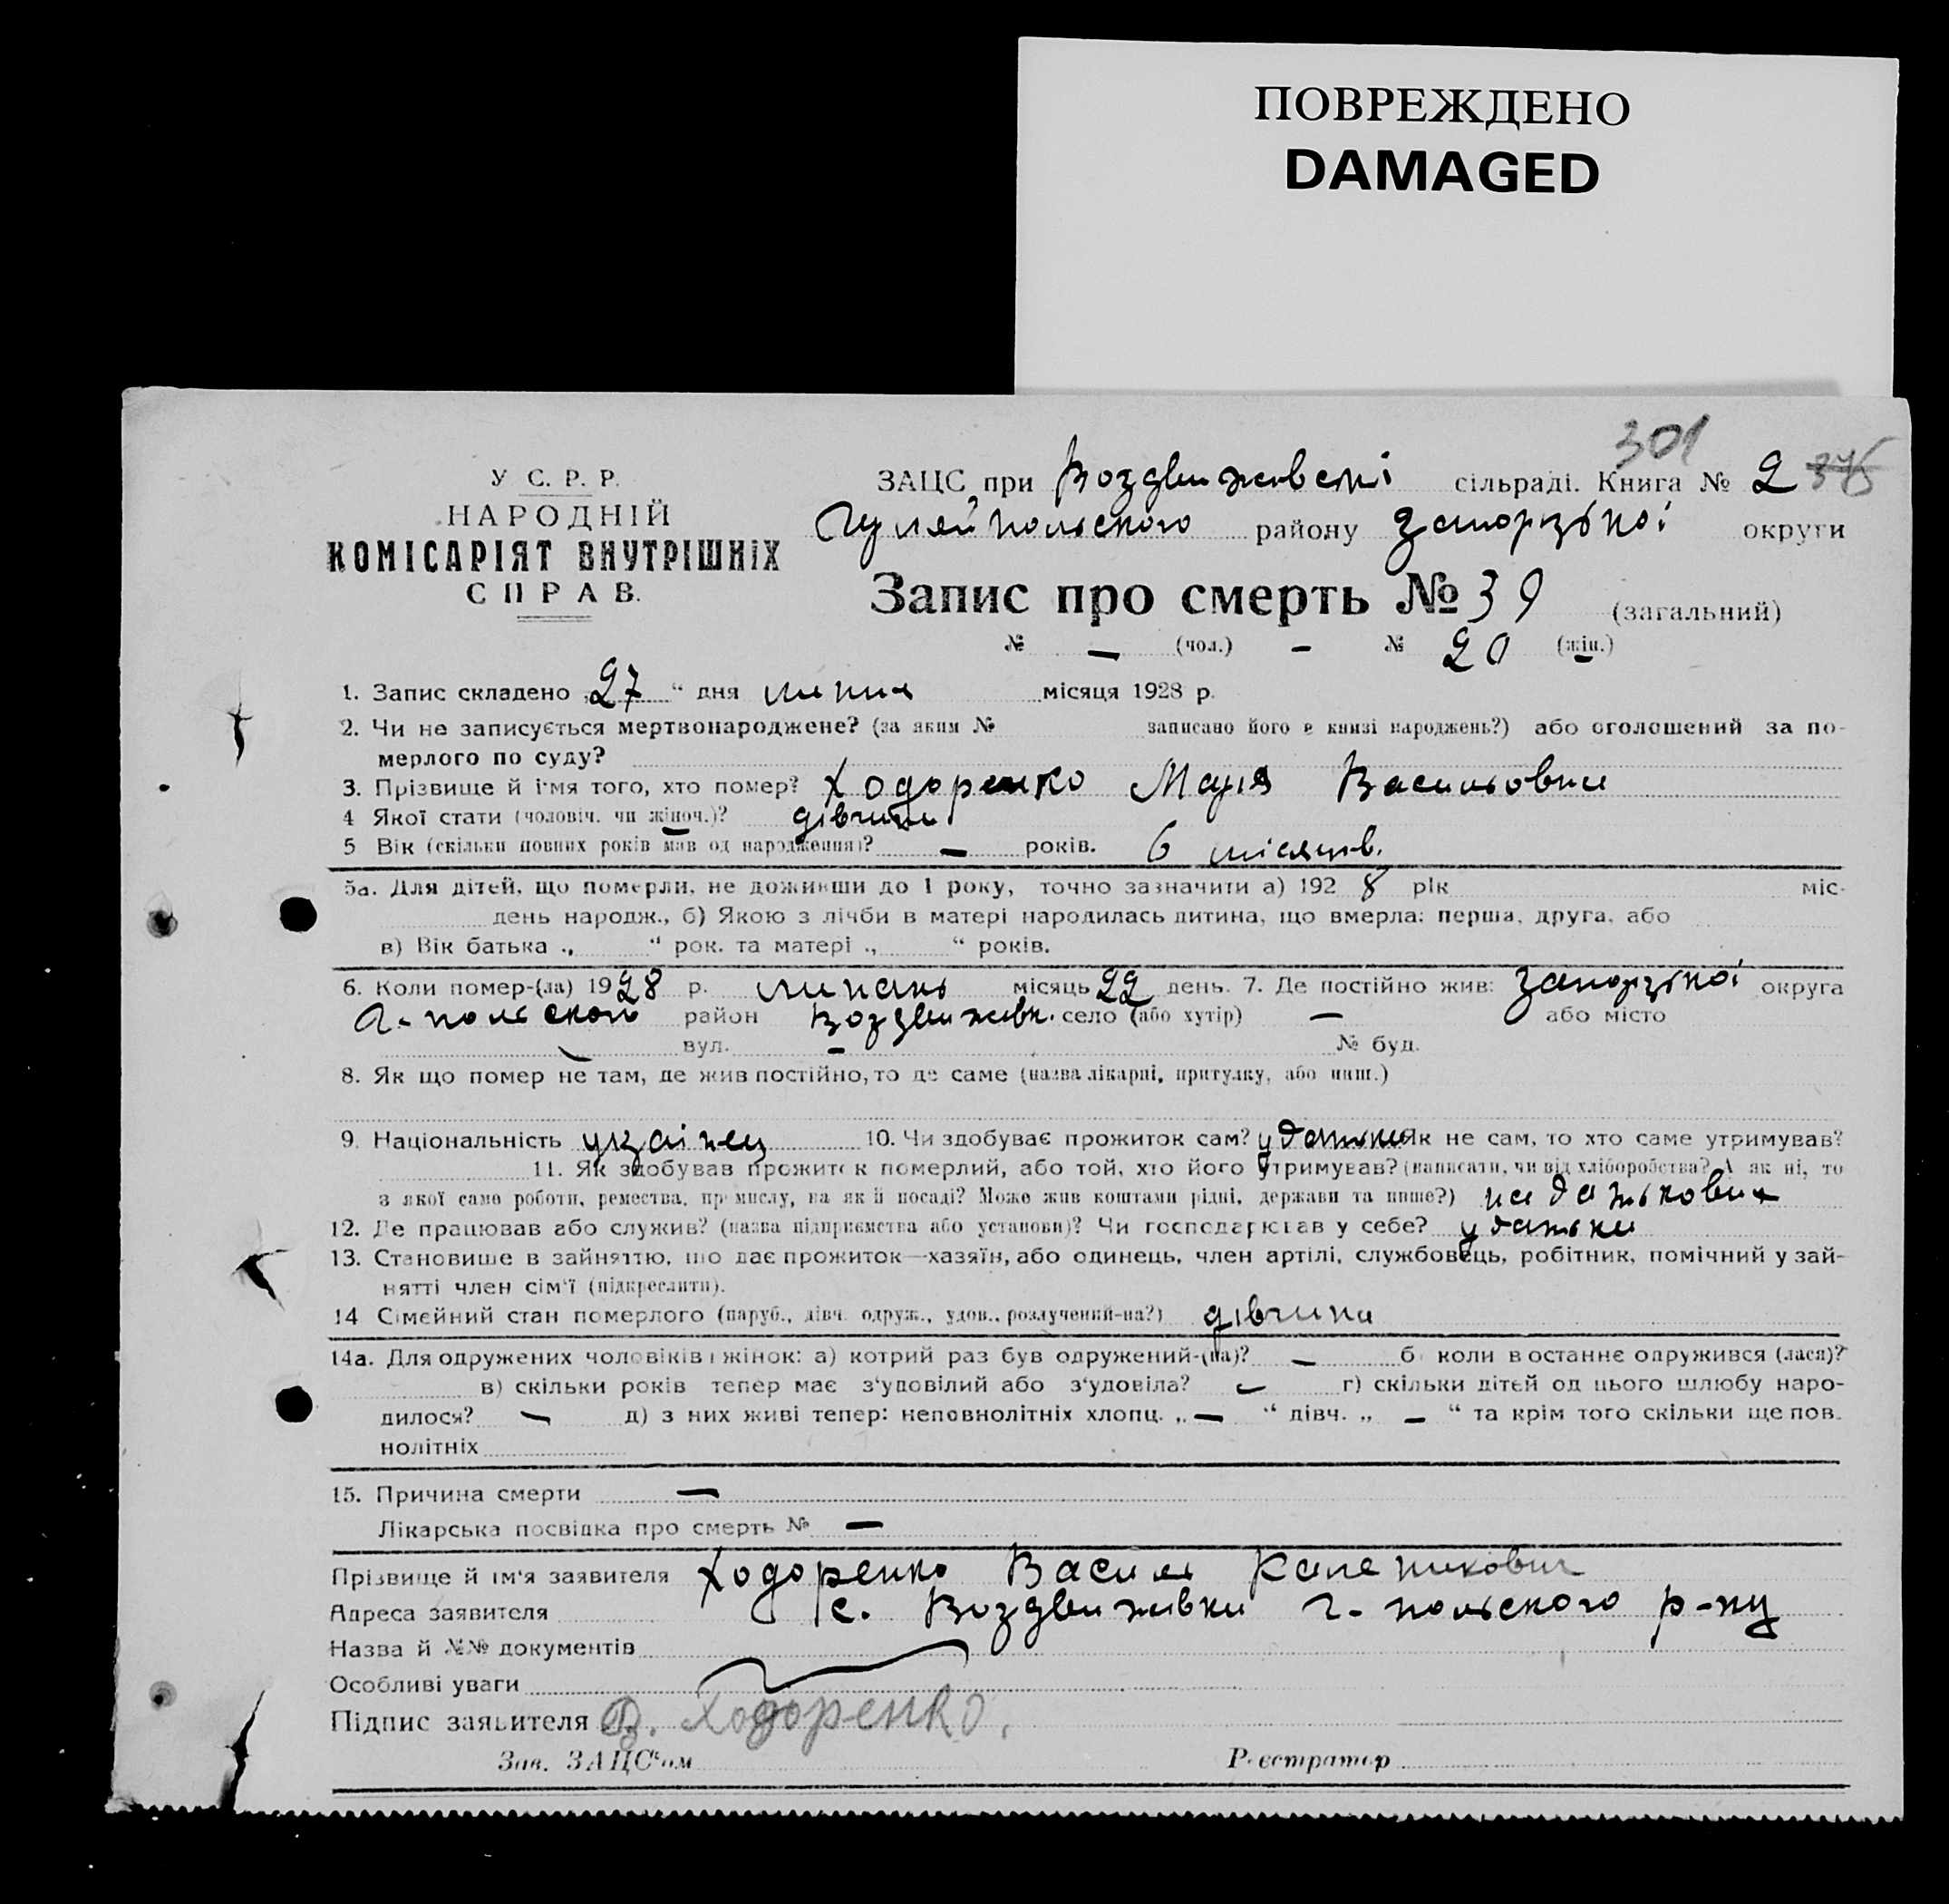 ПОВРЕЖДЕНО
DAMAGED
301
У С. Р. Р.
НАРОДНІЙ
КОМІСАРІЯТ ВНУТРІШНІХ
СПРАВ.
ЗАЦС при сільраді. Книга № 2 375
Гуляйпольского району Запорізької округи
Запис про смерть № 39 (загальний)
№ — (чол.) — № 20 (жін.)
1. Запис складено „27“ дня липня місяця 1928 р.
2. Чи не записується мертвонароджене? (за яким № записано його в книзі народжень?) або оголошений за по-
мерлого по суду?
3. Прізвище й ім'я того, хто помер? Ходоренко Марія Васильовна
4 Якої стати (чоловіч. чи жіноч.)? дівчина
5 Вік (скільки повних років мав од народження)? — років. 6 місяців.
5а. Для дітей, що померли, не доживши до 1 року, точно зазначити а) 1928 рік міс-
день народж., б) Якою з лічби в матері народилась дитина, що вмерла: перша, друга, або
в) Вік батька „ “ рок. та матері „ “ років.
6. Коли помер-(ла) 1928 р. липань місяць 22 день. 7. Де постійно жив: Запорізької округа
Г-польского район Воздвижівк. село (або хутір) — або місто
вул. — № буд.
8. Як що помер не там, де жив постійно, то де саме (назва лікарні, притулку, або инш.)
9. Національність українец 10. Чи здобуває прожиток сам? у батька Як не сам, то хто саме утримував?
11. Як здобував прожиток померлий, або той, хто його утримував? (написати, чи від хліборобства? А як ні, то
з якої саме роботи, ремества, промислу, на якій посаді? Може жив коштами рідні, держави та инше?) на батькових
12. Де працював або служив? (назва підприємства або установи)? Чи господарював у себе? у батька
13. Становище в зайняттю, що дає прожиток—хазяїн, або одинець, член артілі, службовець, робітник, помічний у зай-
нятті член сім'ї (підкреслити).
14 Сімейний стан померлого (паруб., дівч. одруж., удов., розлучений-на?) дівчина
14а. Для одружених чоловіків і жінок: а) котрий раз був одружений-(на)? — б коли в останнє одружився (лася)?
в) скільки років тепер має з'удовілий або з'удовіла? — г) скільки дітей од цього шлюбу наро-
дилося? — д) з них живі тепер: неповнолітніх хлопц. „—“ дівч. „—“ та крім того скільки ще пов.
нолітніх
15. Причина смерти —
Лікарська посвідка про смерть № —
Прізвище й ім'я заявителя Ходоренко Василь Каленикович
Адреса заявителя с. Воздвижівки Г-польского р-ну
Назва й №№ документів
Особливі уваги
Підпис заявителя В. Ходоренко.
Зав. ЗАЦС'ом Реєстратор